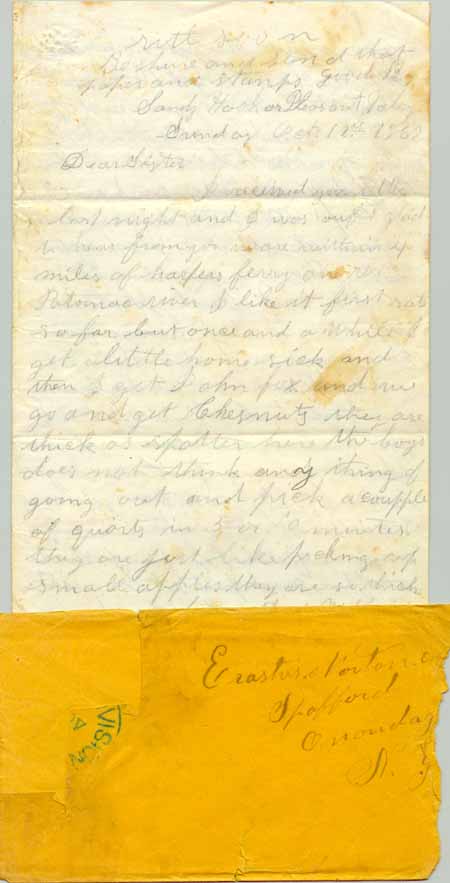 rite soon
Be shure and send that
paper and stamps good by
Sandy Hook or Pleasant Valey
Sunday Oct 12th 1862
Dear Sister
I received your letter
last night and I was glad
to hear from you we are within
miles of harpers ferry on
Potomac river I like it first rate
so far but once and a while I
get a little home sick and
then I get John and we
go and get Chesnuts they are
thick as spatter here the boys
does not think any thing of
going out and pick a coupple
of quarts in 5 or minutes
they are just like picking up
small apples they are so thick
Erastus Norton
Spafford
Onondag
N. Y
VISION